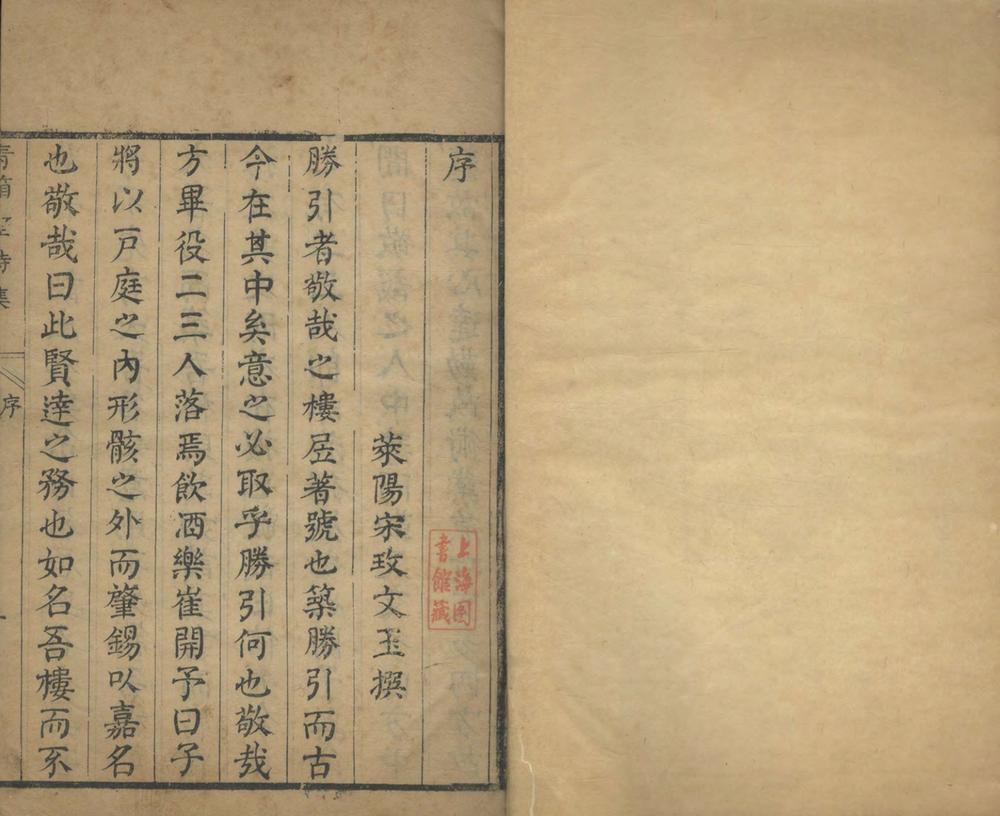 序
萊陽宋玫文玉撰
勝引者敬哉之樓居著號也築勝引而古
今在其中矣意之必取乎勝引何也敬哉
方畢役二三人落焉飲酒樂崔開予曰子
將以戸庭之內形骸之外而肇錫以嘉名
也敬哉曰此賢逹之務也如名吾樓而不
青箱堂詩集
序
一
上海圖
書館藏